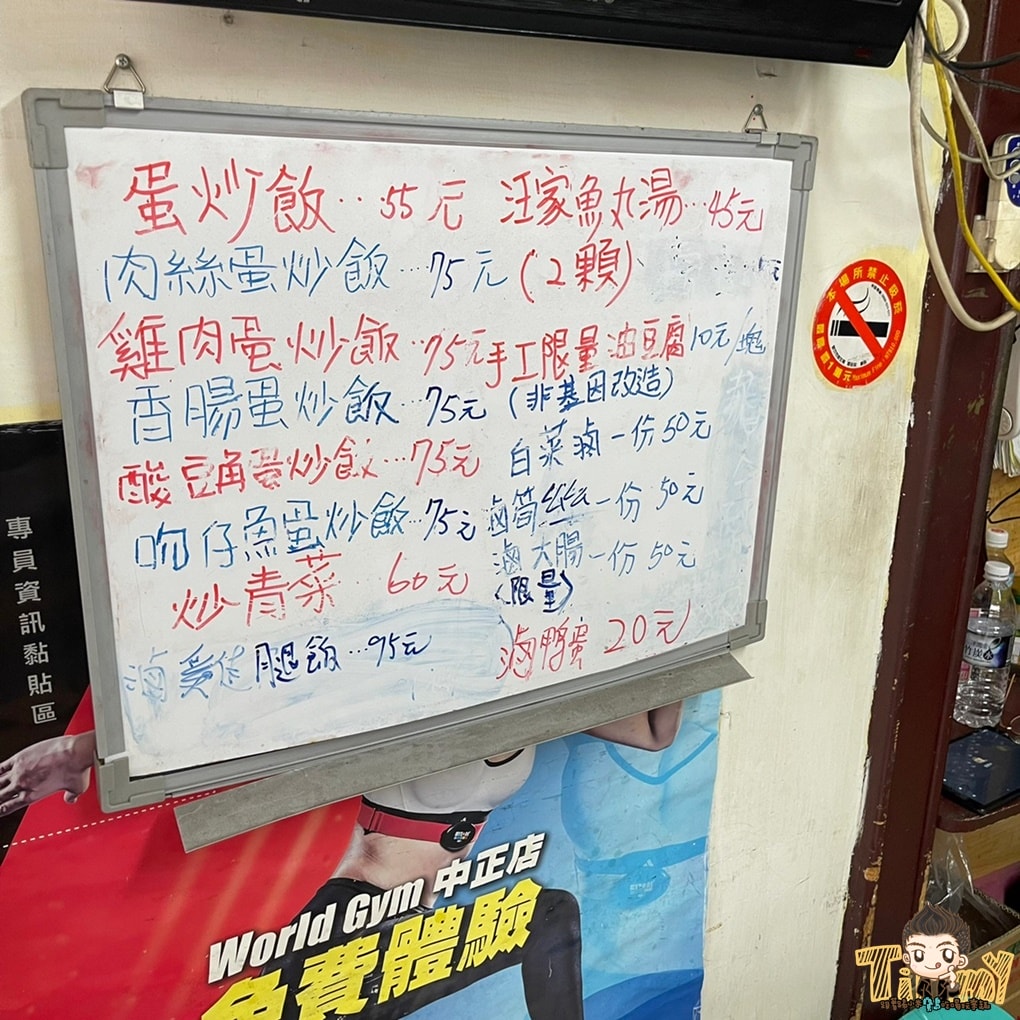 蛋炒飯‥55元
肉絲蛋炒飯…75元
雞肉蛋炒飯…75元
香腸蛋炒飯…75元
酸豆角蛋炒飯…75元
吻仔魚蛋炒飯…75元
炒青菜…60元
滷雞腿飯…95元
汪家魚丸湯…45元
(2顆)
手工限量油豆腐10元/塊
(非基因改造)
白菜滷一份50元
滷筍絲一份50元
滷大腸一份50元
(限量)
滷鴨蛋20元
本場所禁止吸菸
專員資訊黏貼區
World Gym 中正店
免費體驗
TiMMY